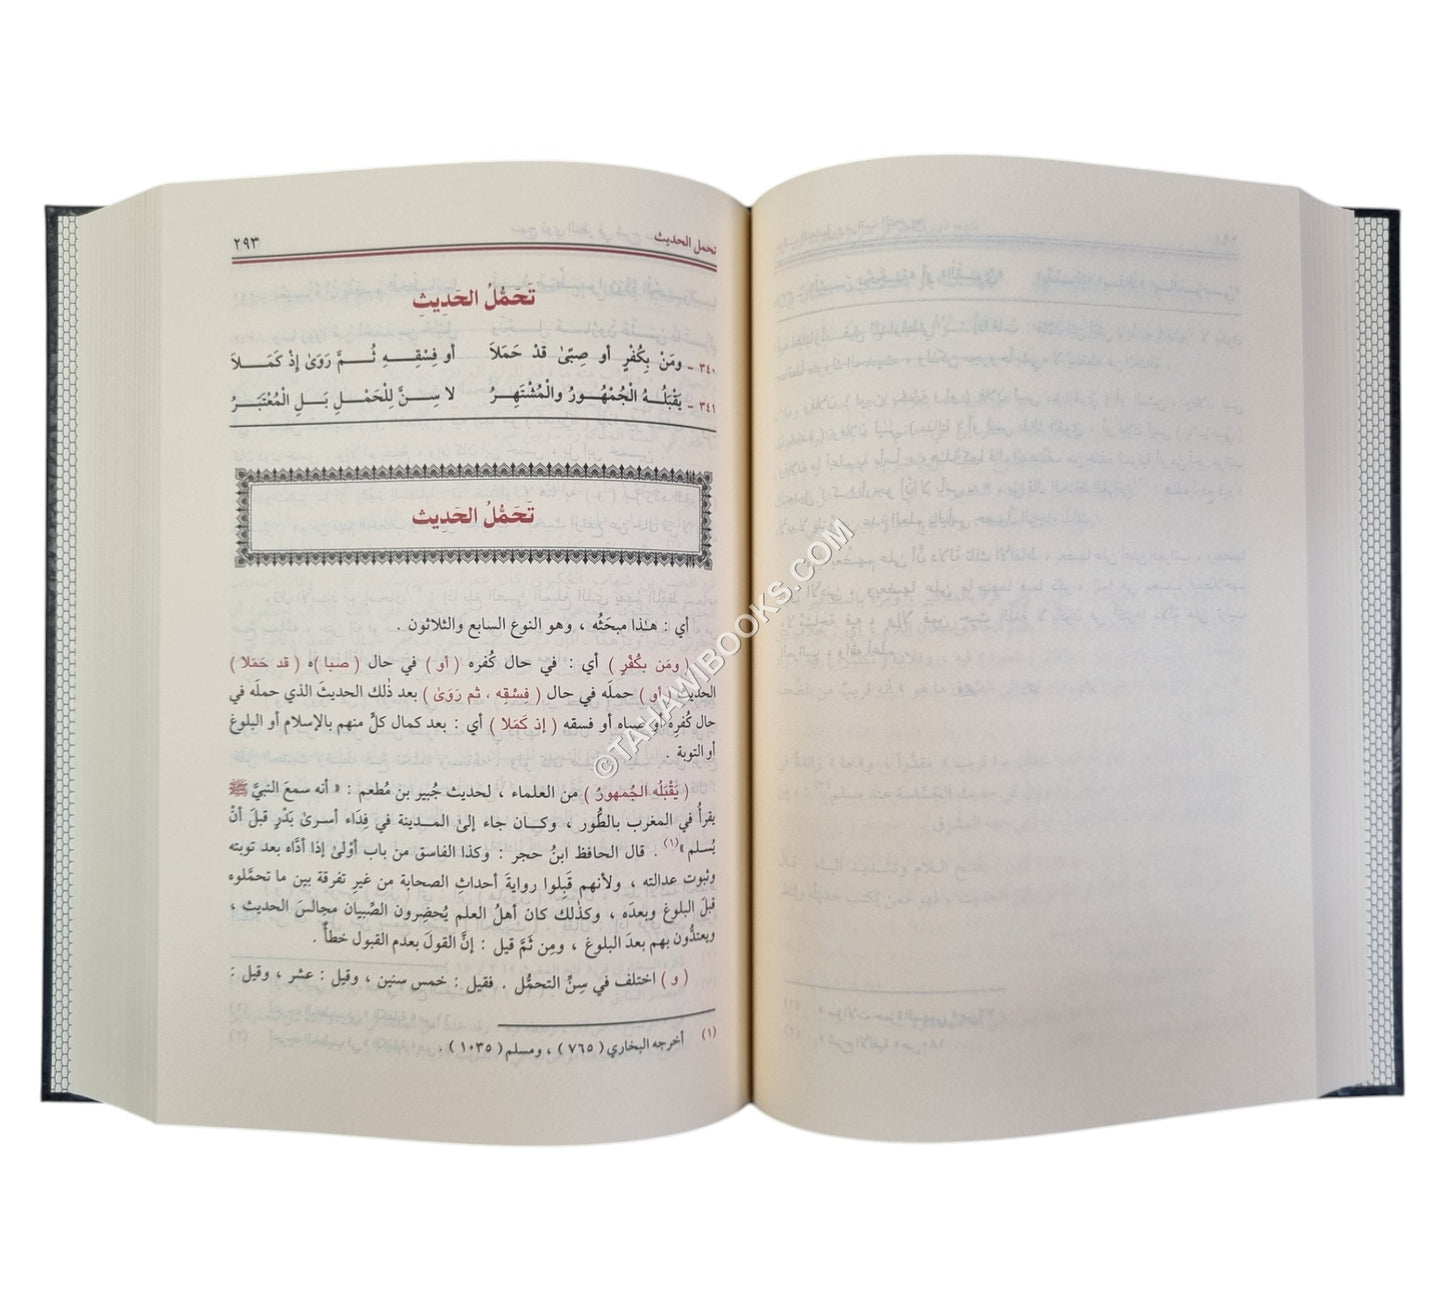 تحمل الحديث
٢٩٣
تَحَمُّلُ الحَدِيثِ
٣٤٠ ـ ومَنْ بِكُفْرٍ أو صِبًى قدْ حَمَلَا أو فِسْقِهِ ثُمَّ رَوَىٰ إذْ كَمَلَا
٣٤١ ـ يَقْبَلُهُ الْجُمْهُورُ والْمُشْتَهِرُ لا سِنَّ لِلْحَمْلِ بَلِ الْمُعْتَبَرُ
تَحَمُّلُ الحَدِيث
أي : هـٰذا مبحَثُه ، وهو النوع السابع والثلاثون .
( ومَن بكُفْرٍ ) أي : في حال كُفره ( أو ) في حال ( صبا )ه ( قد حَمَلا )
الحديث ( أو ) حملَه في حال ( فِسْقِه ، ثم رَوَىٰ ) بعد ذٰلك الحديثَ الذي حملَه في
حال كُفرِه أو صباه أو فسقه ( إذ كَمَلا ) أي : بعد كمال كلٍّ منهم بالإسلام أو البلوغ
أو التوبة .
( يَقْبَلُه الجُمهورُ ) مِن العلماء ، لحديث جُبير بن مُطعم : « أنه سمعَ النبيَّ ﷺ
يقرأُ في المغرب بالطُّور ، وكـان جاء إلىٰ المـدينة في فِدَاء أسرىٰ بَدْرٍ قبلَ أنْ
يُسلم »(١) . قال الحافظ ابنُ حجر : وكذا الفاسق من باب أوْلىٰ إذا أدَّاه بعد توبته
وثبوت عدالته ، ولأنهم قَبِلوا روايةَ أحداثِ الصحابة من غيرِ تفرقة بين ما تحمَّلوه
قبلَ البلوغ وبعدَه ، وكذٰلك كان أهلُ العلم يُحضِرون الصِّبيان مجالسَ الحديث ،
ويعتدُّون بهم بعدَ البلوغ ، ومِن ثَمَّ قيل : إنَّ القولَ بعدم القبول خطأٌ .
( و ) اختلف في سِنِّ التحمُّل . فقيل : خمس سنين ، وقيل : عشر ، وقيل :
(١) أخرجه البخاري ( ٧٦٥ ) ، ومسلم ( ١٠٣٥ ) .
©TAHAWIBOOKS.COM